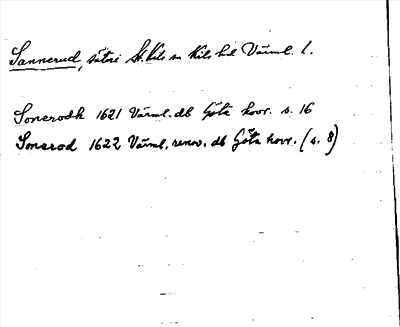 Sannerud, säteri St. Kils sn Kils hd Värml. l.
Sonerodh 1621 Värml. db Göta hovr. s. 16
Sonerod 1622 Värml. renov. db Göta hovr. (s. 8)